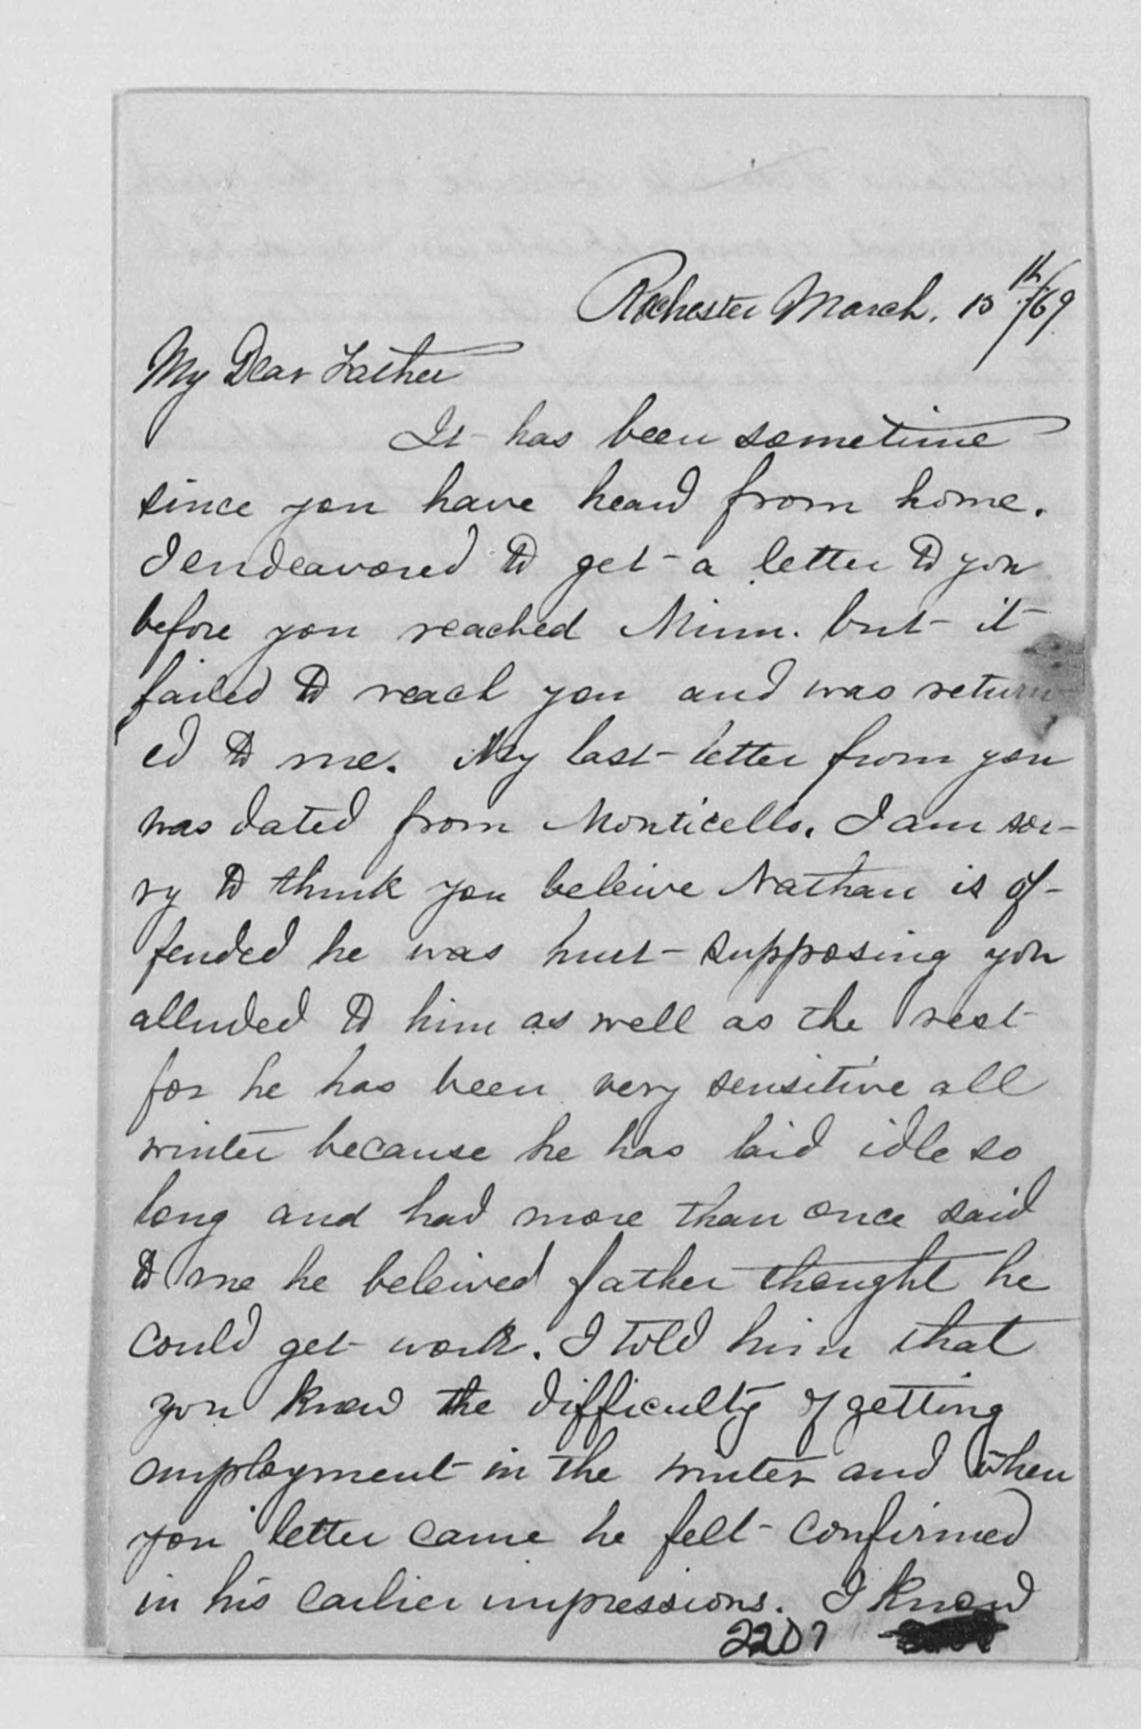 Rochester March. 15th/69.
My Dear Father
It has been sometime
since you have heard from home.
I endeavored to get a letter to you
before you reached Minn. but it
failed to reach you and was return
ed to me. My last letter from you
was dated from Monticello. I am sor-
ry to think you beleive Nathan is of-
fended he was hurt supposing you
alluded to him as well as the rest
for he has been very sensitive all
winter because he has laid idle so
long and had more than once said
to me he beleived father thought he
could get work. I told him that
you knew the difficulty of getting
employment in the winter and when
you letter came he felt confirmed
in his earlier impressions. I know
2207